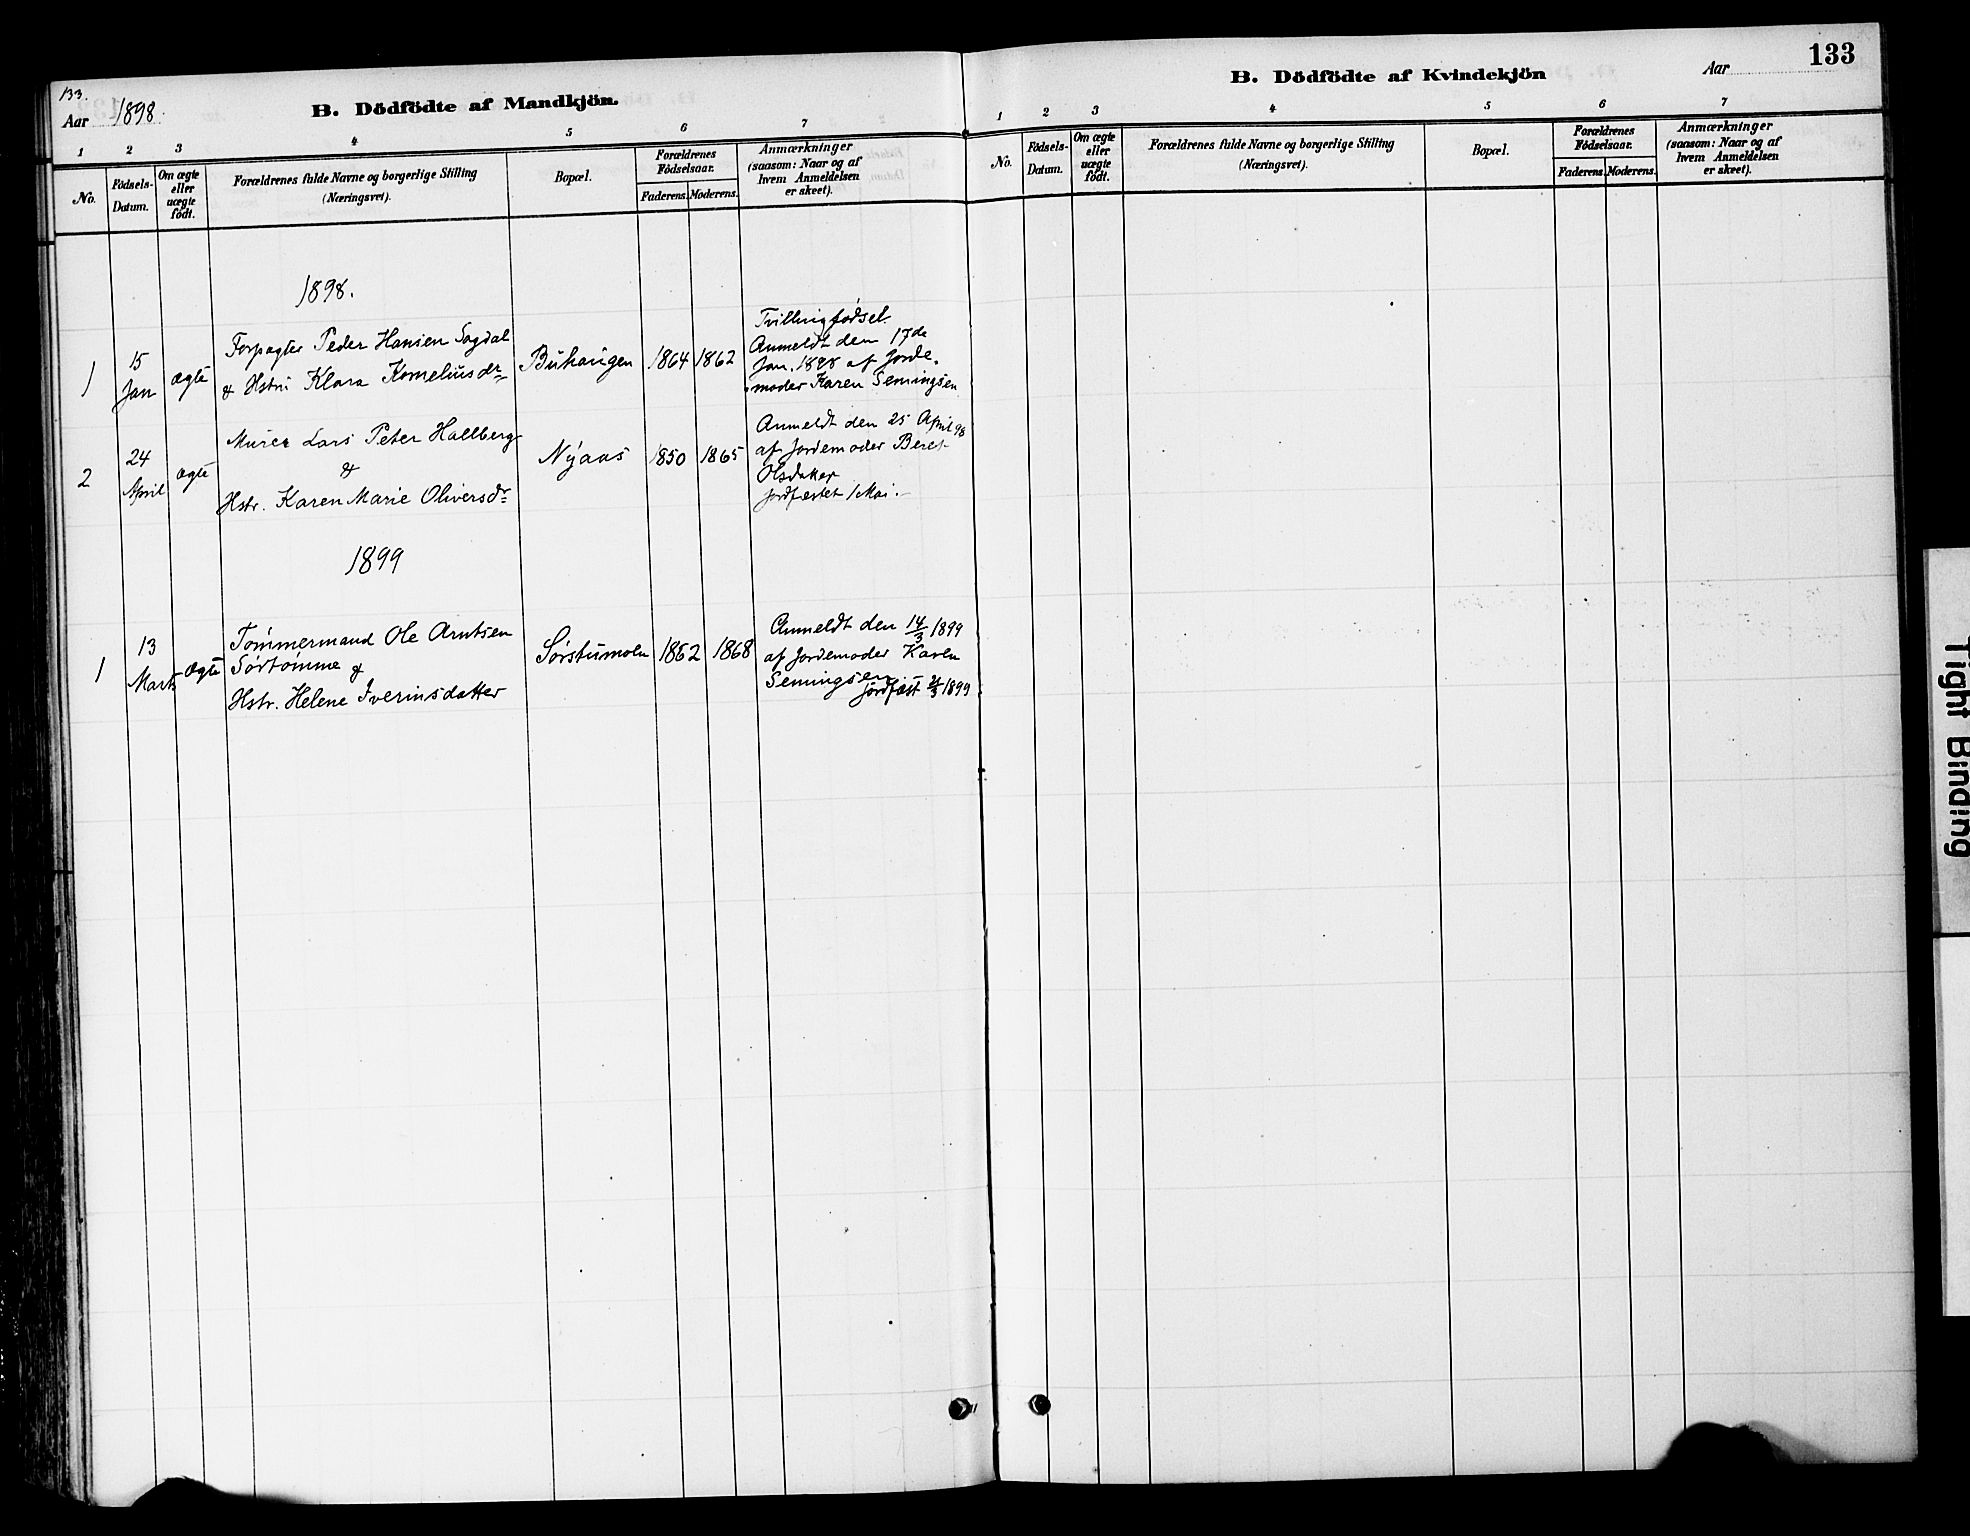 133.
Aar 1898.
B. Dödfödte af Mandkjön.
1 2 3 4 5 6 7
No.
Födsels-
Datum.
Om ægte
eller
uægte
födt.
Forældrenes fulde Navne og borgerlige Stilling
(Næringsvei).
Bopæl.
Forældrenes
Födselsaar.
Faderens. Moderens.
Anmærkninger
(saasom: Naar og af
hvem Anmeldelsen
er skeet).
1898.
1
15
Jan
ægte
Forpagter Peder Hansen Sogdal
& Hstru Klara Korneliusdr
Buhaugen
1864 1862
Tvillingfødsel.
Anmeldt den 17de
Jan. 1898 af Jorde-
moder Karen Semingsen
2
24
April
ægte
Murer Lars Peter Hallberg
&
Hstr. Karen Marie Oliversdr
Nyaas
1850 1865
Anmeldt den 25 April 98
af Jordemoder Beret
Olsdatter
jordfæstet 1 Mai.
1899
1
13
Marts
Ægte
Tømmermand Ole Arntsen
Sørtømme &
Hstr. Helene Iverinsdatter
Sørstumoen
1862 1868
Anmeldt den 14/3 1899
af Jordemoder Karen
Semingsen
jordfæst 1899
B. Dödfödte af Kvindekjön
Aar
133
1 2 3 4 5 6 7
No.
Födsels-
Datum.
Om ægte
eller
uægte
födt.
Forældrenes fulde Navne og borgerlige Stilling
(Næringsvei).
Bopæl.
Forældrenes
Födselsaar.
Faderens. Moderens.
Anmærkninger
(saasom: Naar og af
hvem Anmeldelsen
er skeet).
Tight Binding